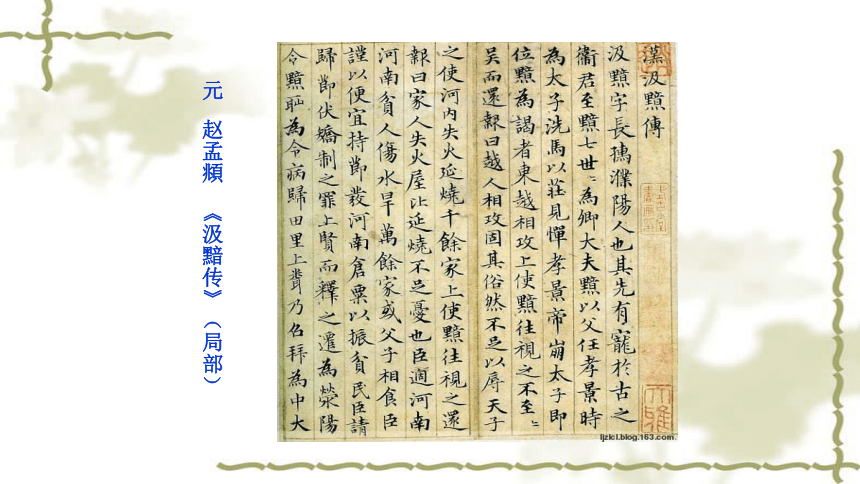 元 赵孟頫 《汲黯传》（局部）
漢汲黯傳
汲黯字長孺濮陽人也其先有寵於古之
衛君至黯七世〻為卿大夫黯以父任孝景時
為太子洗馬以莊見憚孝景帝崩太子即
位黯為謁者東越相攻上使黯往視之不至〻
吳而還報曰越人相攻固其俗然不足以辱天子
之使河内失火延燒千餘家上使黯往視之還
報曰家人失火屋比延燒不足憂也臣適河南
河南貧人傷水旱萬餘家或父子相食臣
謹以便宜持節發河南倉粟以振貧民臣請
歸節伏矯制之罪上賢而釋之遷為滎陽
令黯恥為令病歸田里上聞乃召拜為中大
ljzlcl.blog.163.com